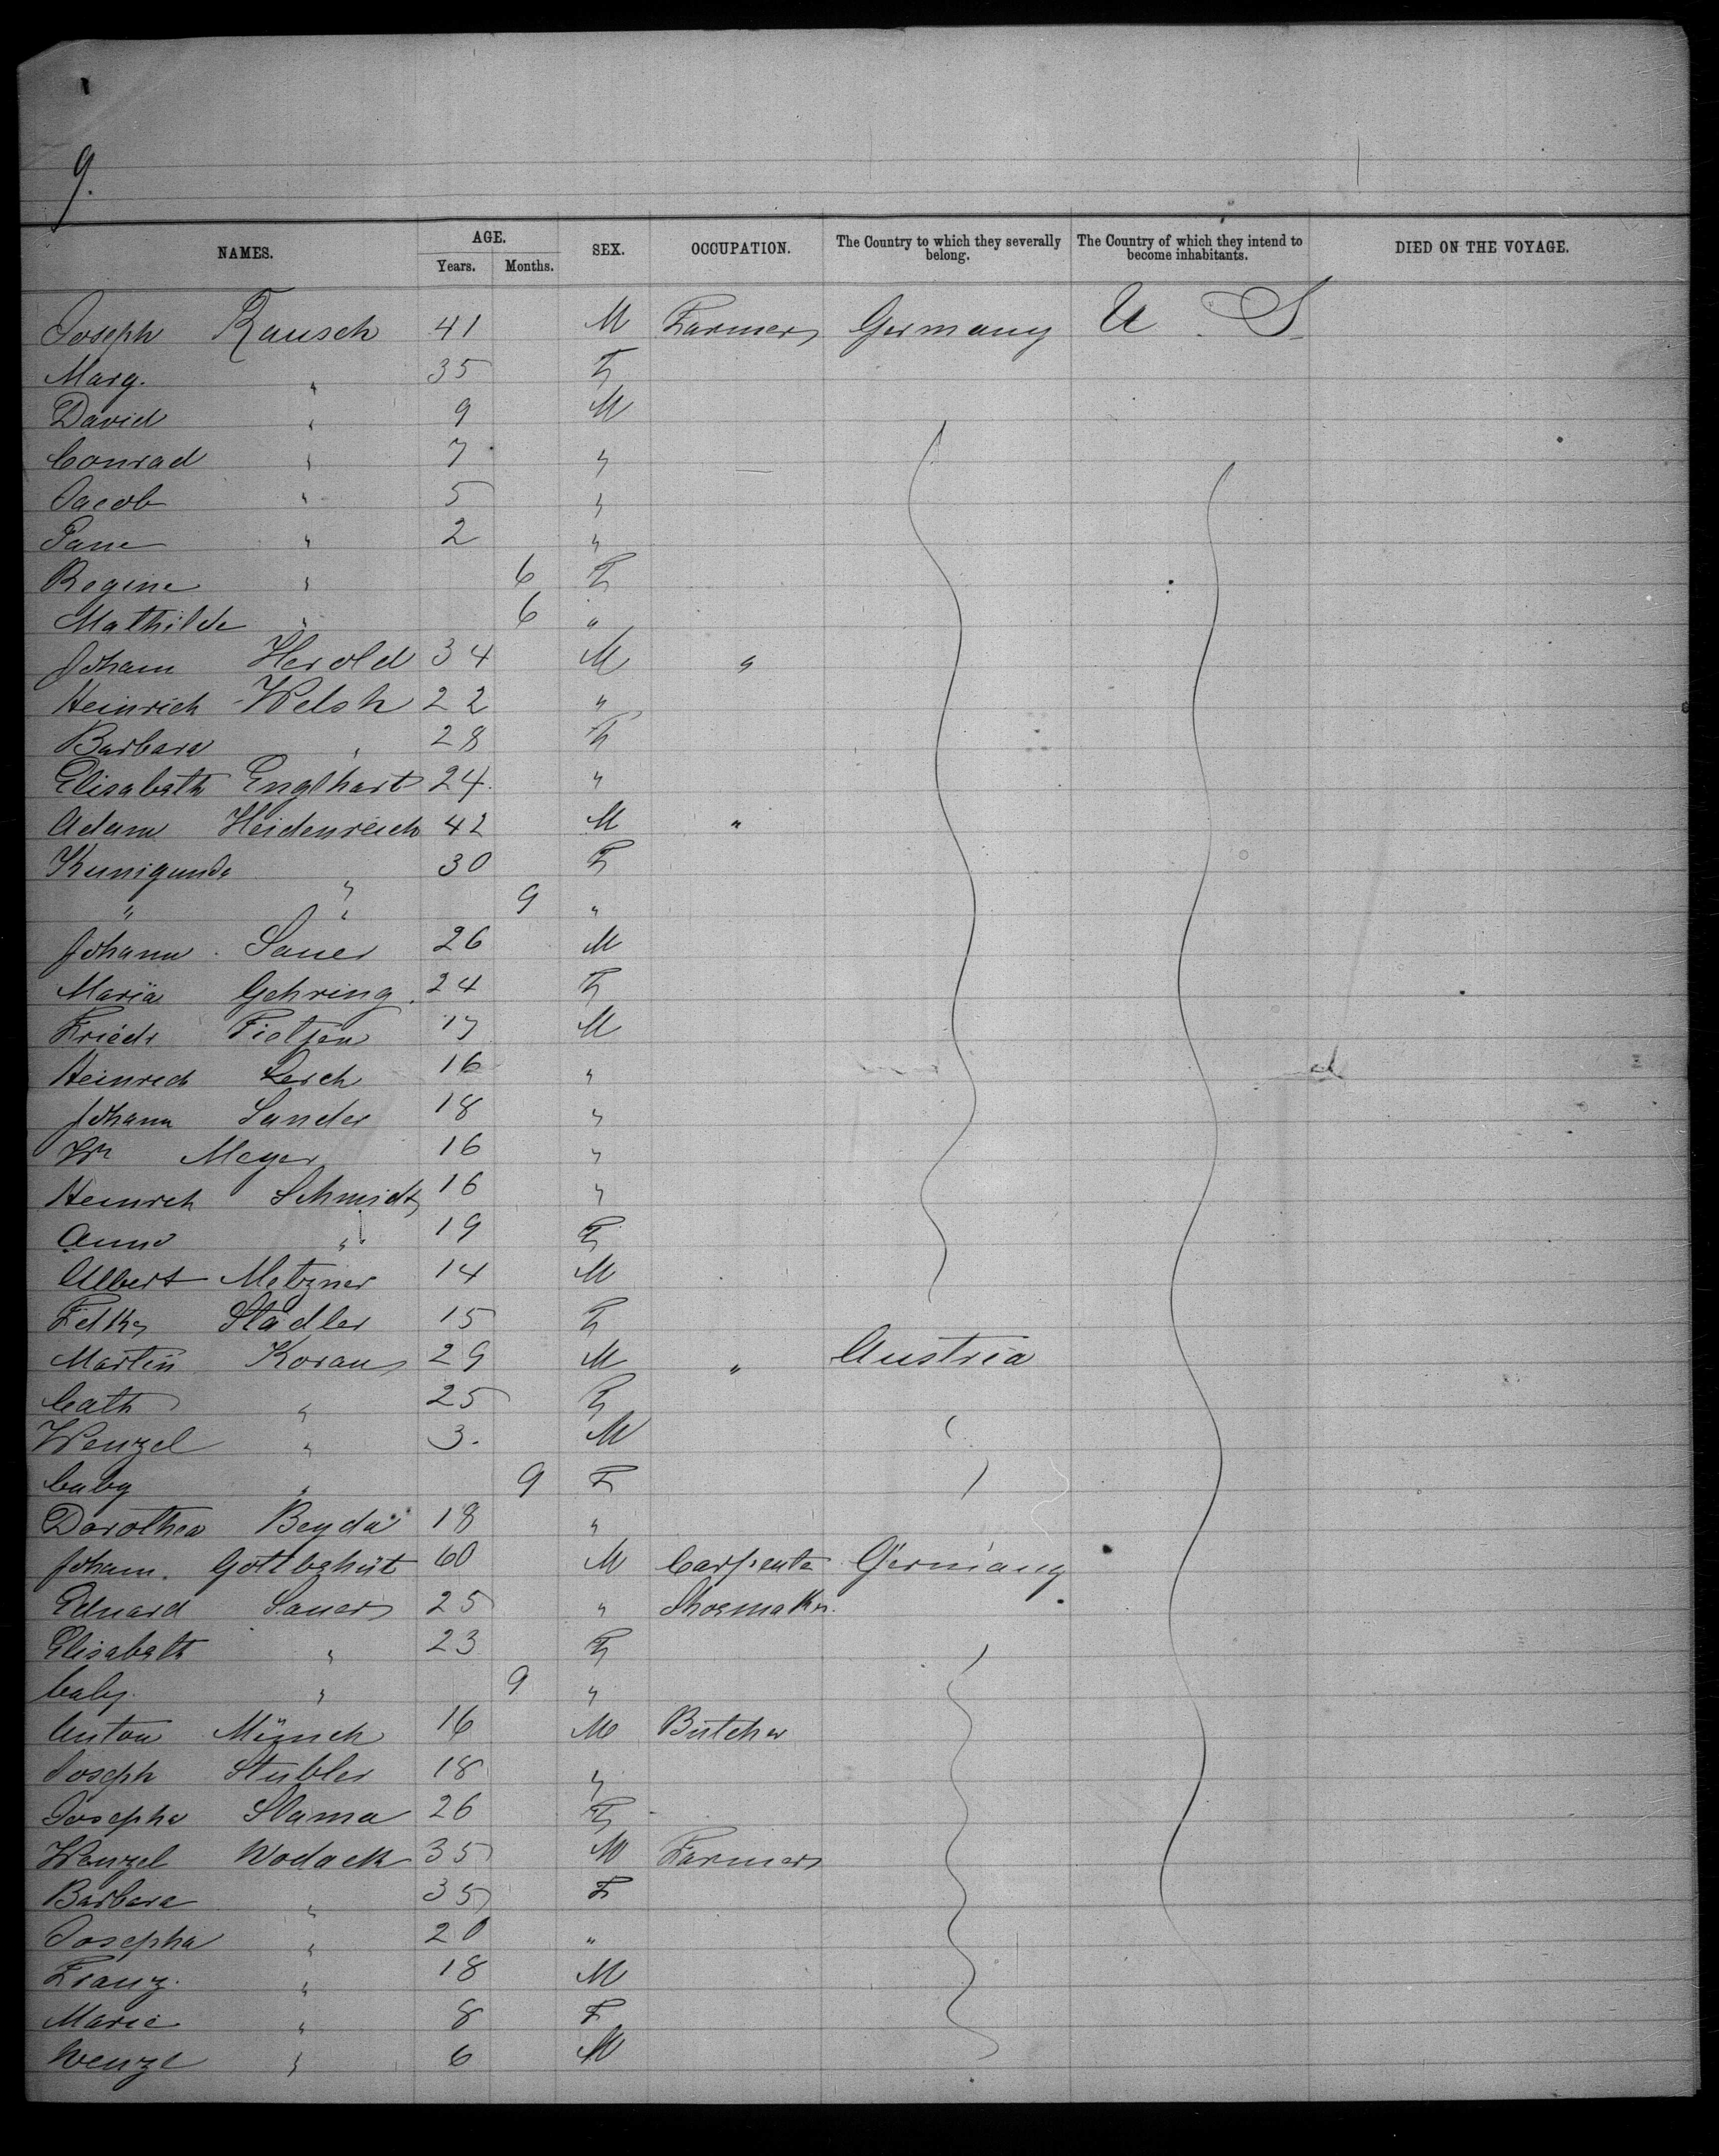 9.
NAMES. AGE. SEX. OCCUPATION. The Country to which they severally belong. The Country of which they intend to become inhabitants. DIED ON THE VOYAGE.
Years. Months.
Joseph Rausch 41 M Farmer Germany U. S.
Marg. " 35 F
David " 9 M
Conrad " 7 "
Jacob " 5 "
" 2 "
Regine " 6 F
Mathilde " 6 "
Joham Herold 34 M "
Heinrich Welsh 22 "
Barbara " 28 F
Elisabeth Englhart 24 "
Adam Heidenreich 42 M "
Kunigunde " 30 F
" " 9 "
Johann Sauer 26 M
Maria Gehring 24 F
Friedr 17 M
Heinrich Lerch 16 "
Johann Sander 18 "
Wm Meyer 16 "
Heinrich Schmidt 16 "
Anna " 19 F
Albert Metzner 14 M
Stadler 15 F
Martin Koran 29 M " Austria
Cath " 25 F
Wenzel " 3. M
baby " 9 F
Dorothea Beyda 18 "
Joham. 60 M Carpenter Germany
Eduard Sauer 25 " Shoemaker
Elisabeth " 23 F
baby. " 9 "
Anton Münch 16 M Butcher
Joseph Stubler 18 "
Josepha Slama 26 F
Wenzel Wodack 35 M Farmer
Barbara " 35 F
Josepha " 20 "
Franz. " 18 M
Marie " 8 F
Wenzl " 6 M